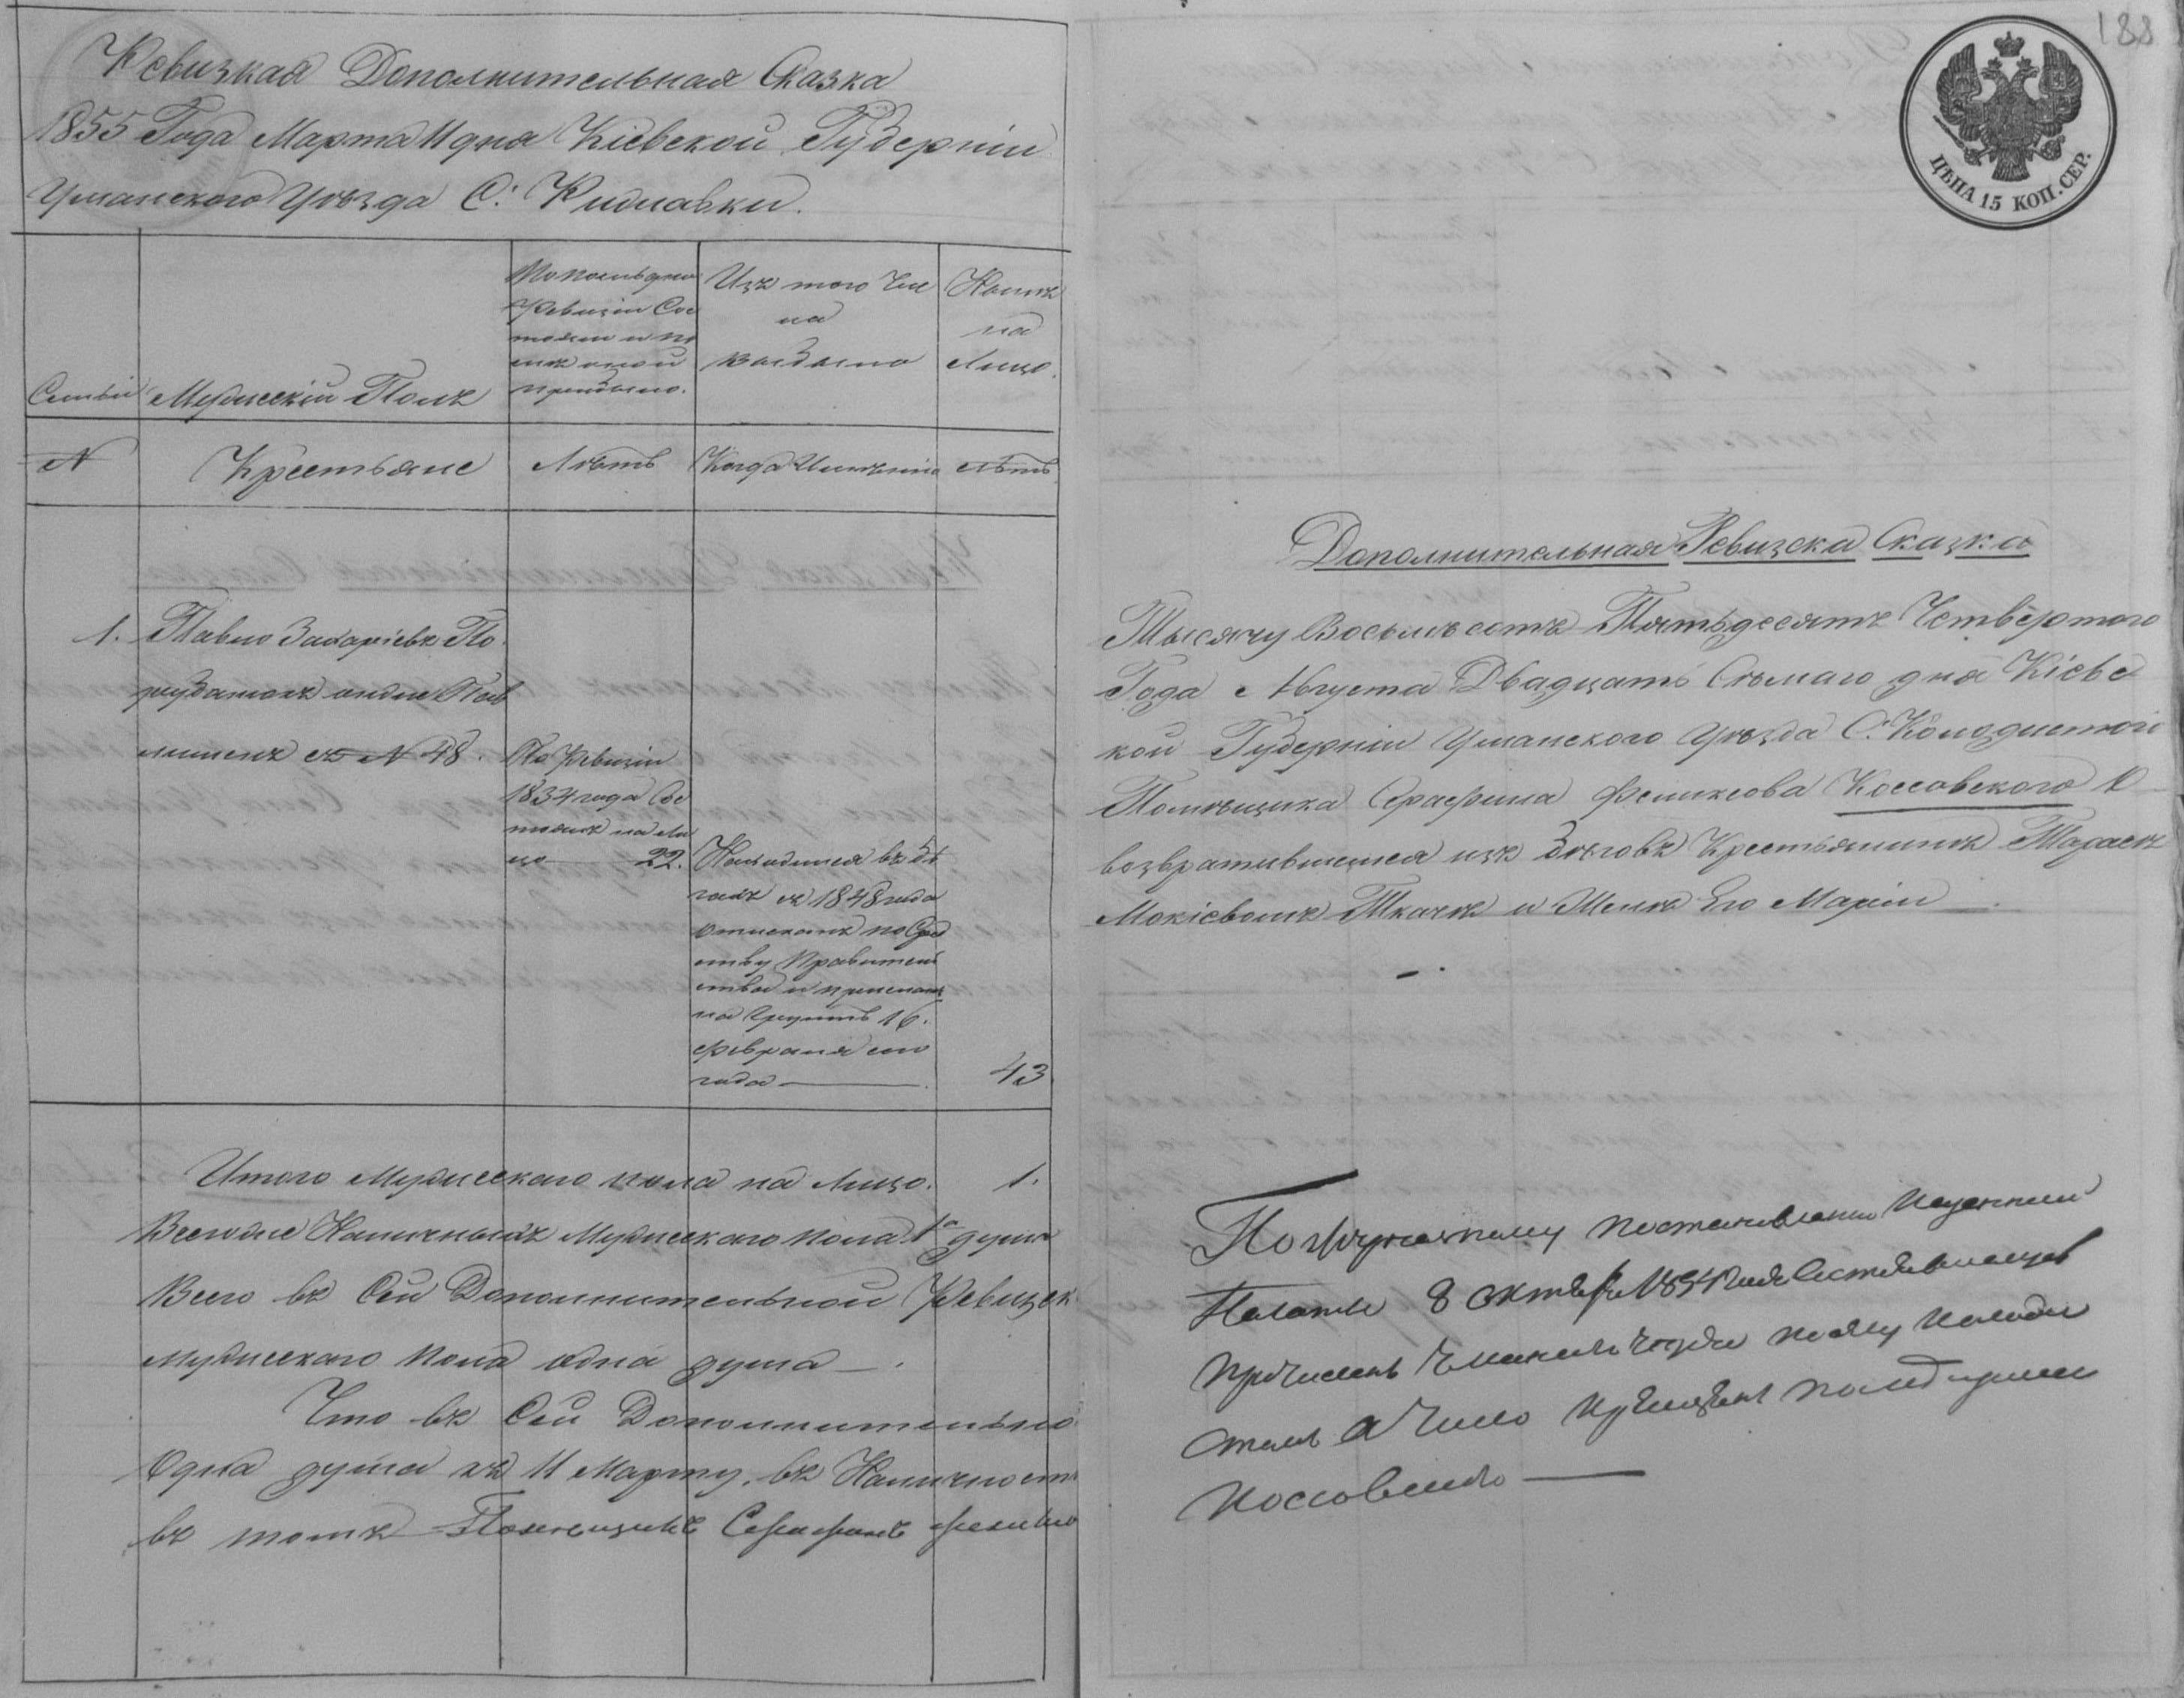 Ревизкая Дополнительная Сказка
1855 Года Марта 11 дня Кіевской Губерніи
Уманского Уѣзда С. Кидлавки.
Семьи
Мужескій Полъ
По последней
Ревизіи Сос
тояло и по
слѣ оной
прибыло.
Изъ того Чис
ла
выбыло
Налич
на
Лицо.
N
Крестьяне
Лѣтъ
Когда Именно
Лѣтъ
1.
Павло Захаріевъ По
лишенъ съ N 48.
По Ревизіи
1834 года Сос
тоялъ на Ли
цо 22.
Находился въ бѣ
гахъ съ 1848 года
Отысканъ по Сред
ству Правитель
ства и присланъ
на Грунтъ 16.
февраля сего
года
43
Итого Мужескаго пола на Лицо. 1.
Всего же Наличныхъ Мужескаго пола 1а душа
Всего въ Сей Дополнительной Ревизск
Мужескаго Пола одна душа
Что въ Сей Дополнительно
Одна душа къ 11 Марту въ Наличност
въ томъ Помѣщикъ Серафинъ
188
ЦѢНА 15 КОП. СЕР.
Дополнительная Ревизска Сказка
Тысячу Восьмъсотъ Пятьдесятъ Четвёртого
Года Августа Двадцать Съмаго дня Кіевс
кой Губерніи Уманского Уѣзда С. Колодистой
Помѣщика Серафина Феликсова Коссовского О
возвратившемся изъ Бѣговъ Крестьянинѣ Тадаеѣ
Мокіевомъ Ткачѣ и Женѣ Его Маріи
По журнальному постановленію Казенной
Палаты 8 Октября 1854 года Состоявшемуся
Причислен Уманскаго уезда к селу Колоди
стой а Число помещика
Коссовского